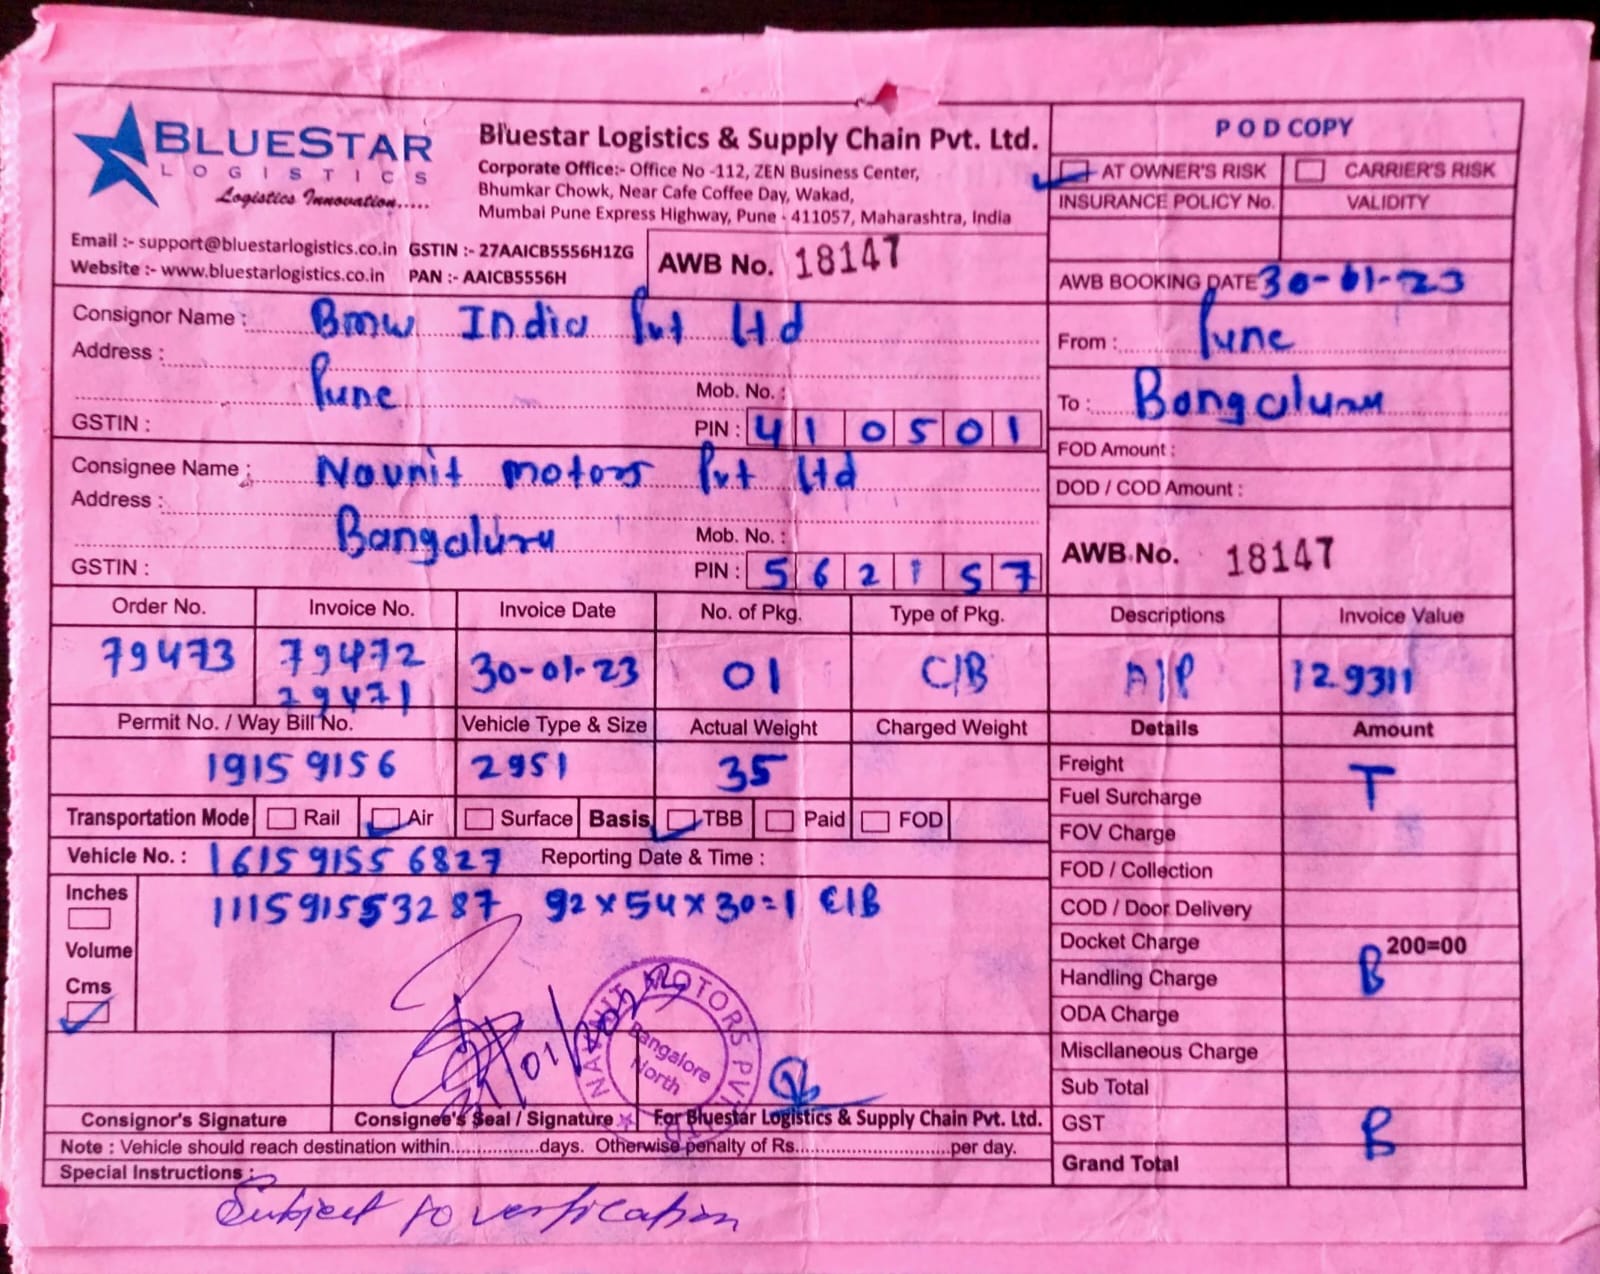 BLUESTAR
LOGISTICS
Logistics Innovation.....
Bluestar Logistics & Supply Chain Pvt. Ltd.
Corporate Office:- Office No -112, ZEN Business Center,
Bhumkar Chowk, Near Cafe Coffee Day, Wakad,
Mumbai Pune Express Highway, Pune - 411057, Maharashtra, India
Email :- support@bluestarlogistics.co.in GSTIN :- 27AAICB5556H1ZG
Website :- www.bluestarlogistics.co.in PAN :- AAICB5556H
AWB No. 18147
POD COPY
AT OWNER'S RISK CARRIER'S RISK
INSURANCE POLICY No. VALIDITY
AWB BOOKING DATE 30-01-23
From : Pune
To : Bangaluru
FOD Amount :
DOD / COD Amount :
AWB No. 18147
Consignor Name : Bmw India Pvt Ltd
Address :
Pune Mob. No. :
GSTIN : PIN : 410501
Consignee Name : Navnit motors Pvt Ltd
Address :
Bangaluru Mob. No. :
GSTIN : PIN : 562157
Order No. Invoice No. Invoice Date No. of Pkg. Type of Pkg. Descriptions Invoice Value
79473 79472 30-01-23 01 C/B A/P 129311
79471
Permit No. / Way Bill No. Vehicle Type & Size Actual Weight Charged Weight Details Amount
19159156 2951 35
Transportation Mode Rail Air Surface Basis TBB Paid FOD
Vehicle No. : 161591556827 Reporting Date & Time :
Inches
111591553287 92x54x30=1 C/B
Volume
Cms
Freight
T
Fuel Surcharge
FOV Charge
FOD / Collection
COD / Door Delivery
Docket Charge 200=00
B
Handling Charge
ODA Charge
Miscllaneous Charge
Sub Total
GST
B
Grand Total
NAVNIT MOTORS PVT
Bangalore
North
Consignor's Signature Consignee's Seal / Signature For Bluestar Logistics & Supply Chain Pvt. Ltd.
Note : Vehicle should reach destination within.................days. Otherwise penalty of Rs..............................per day.
Special Instructions :
Subject to verification